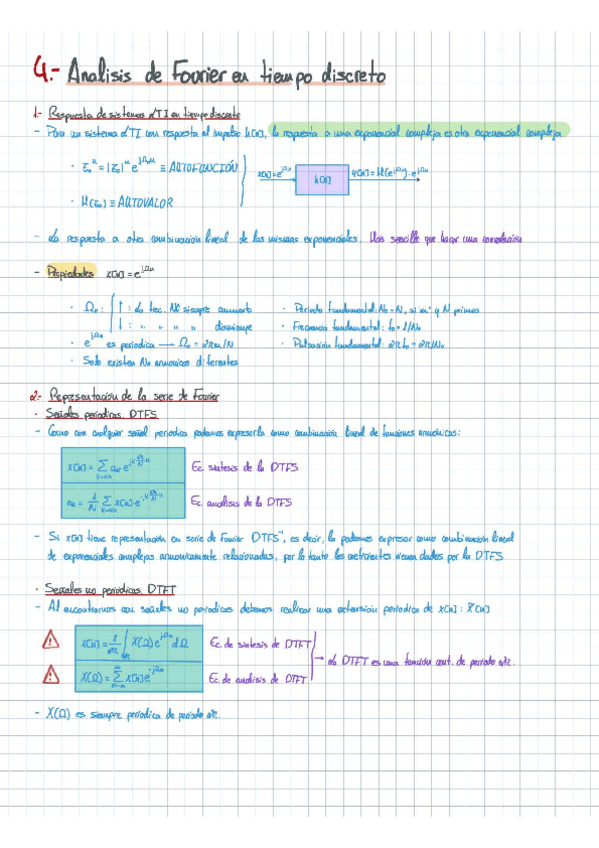 4.- Analisis de Fourier en tiempo discreto
1.- Respuesta de sistemas LTI en tiempo discreto
- Para un sistema LTI con respuesta al impulso h[n], la respuesta a una exponencial compleja es otra exponencial compleja
· z₀ⁿ = |z₀|ⁿ e^{jΩ₀n} ≡ AUTOFUNCIÓN
x[n]=e^{jΩn} h[n] y[n]=H(e^{jΩ})·e^{jΩn}
· H(z₀) ≡ AUTOVALOR
- La respuesta a otra combinación lineal de las mismas exponenciales. Más sencillo que hacer una convolución
- Propiedades x[n]=e^{jΩn}
· Ω₀: ↑: La frec. NO siempre aumenta
↓: " " " " disminuye
· e^{jΩn} es periodica → Ω₀=2πm/N
· Solo existen N₀ armonicos diferentes
· Periodo fundamental: N₀=N, si m y N primos
· Frecuencia fundamental: f₀=1/N₀
· Pulsación fundamental: 2πf₀=2π/N₀
2.- Representación de la serie de Fourier
· Señales periodicas. DTFS
- Como con cualquier señal periodica podemos expresarla como combinación lineal de funciones armonicas:
x[n]= Σ aₖ e^{jk 2π/N n} Ec. sintesis de la DTFS
aₖ= 1/N Σ x[n]·e^{-jk 2π/N n} Ec. analisis de la DTFS
- Si x[n] tiene representación en serie de Fourier "DTFS", es decir, la podemos expresar como combinación lineal
de exponenciales complejas armonicamente relacionadas, por lo tanto los coeficientes vienen dados por la DTFS.
· Señales no periodicas. DTFT
- Al encontrarnos con señales no periodicas debemos realizar una extensión periodica de x[n]: x̃[n]
x[n]= 1/2π ∫_{2π} X(Ω)e^{jΩn}dΩ Ec. de sintesis de DTFT
→ La DTFT es una función cont. de periodo 2π.
X(Ω)= Σ x[n]e^{-jΩn} Ec. de analisis de DTFT
- X(Ω) es siempre periodica de periodo 2π.